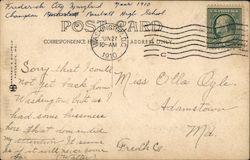 Frederick City Maryland Year 1910
Champion Baseball High School
POST CARD
CORRESPONDENCE HERE
ADDRESS ONLY
JUN 27
10-AM
1910
Sorry that I could
not get back from
Washington but as
had some business
here that demanded
my attention. It seems
as if it will never
Miss Olla Ogle.
Adamstown
Md.
Fred'k Co.